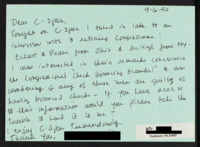 9-6-92
Dear C-Span,
Tonight on C-Span I tuned in late to an
interview with 2 retiring Congressmen:
Eckart & Pease from Ohio & McHugh from NY.
I was interested in their remarks concerning
the Congressional Check Bouncing Scandal & am
wondering if any of these men are guilty of
having bounced checks. If you have access
to that information would you please take the
trouble to send it to me?
Enjoy C-Span Tremendously.
Thank You,